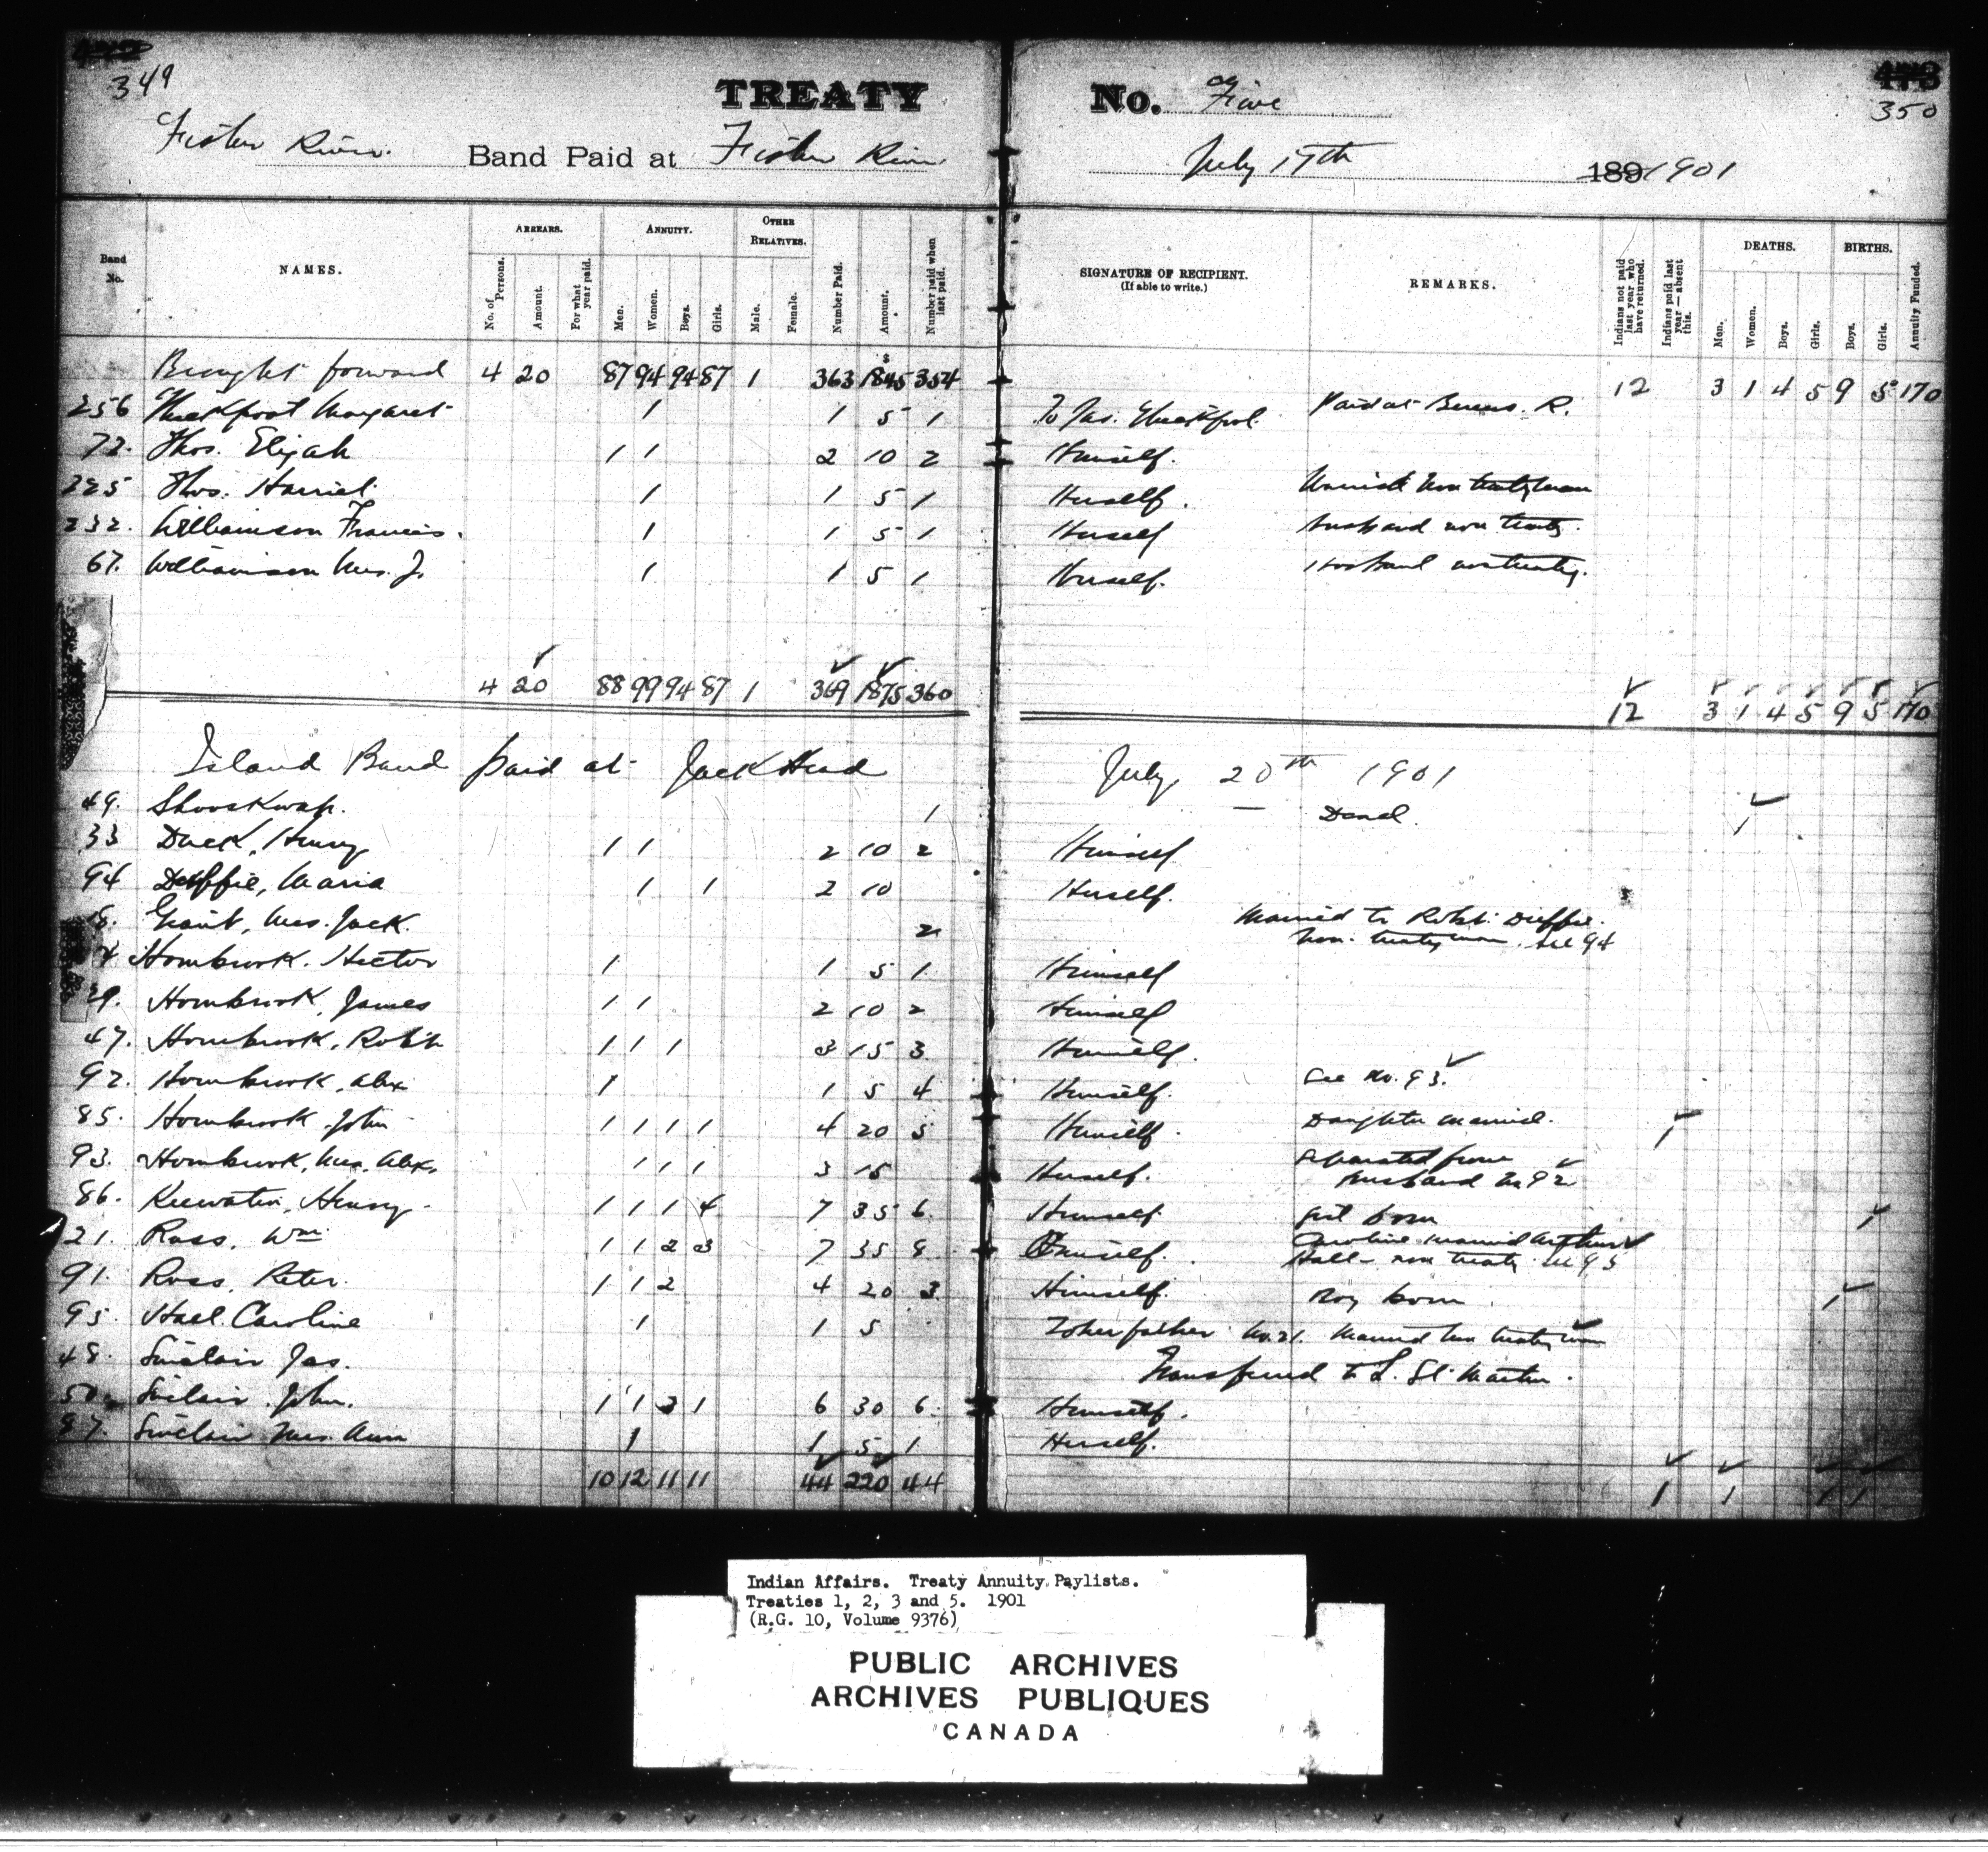 349
TREATY No. Five
350
Fisher River. Band Paid at Fisher River July 17th 1891901
Band No. NAMES. ARREARS. No. of Persons. Amount. For what year paid. ANNUITY. Men. Women. Boys. Girls. OTHER RELATIVES. Male. Female. Number Paid. Amount. Number paid when last paid. SIGNATURE OF RECIPIENT. (If able to write.) REMARKS. Indians not paid last year who have returned. Indians paid last year — absent this. DEATHS. Men. Women. Boys. Girls. BIRTHS. Boys. Girls. Annuity Funded.
Brought forward 4 20 87 94 94 87 1 363 $1845 354 12 3 1 4 5 9 5 170
256 Margaret 1 1 5 1 To Jas. Paid at Berens R.
72. Thos. Elijah 1 1 2 10 2 Himself.
225 Thos. Harriet 1 1 5 1 Herself. Married non treaty man
232. Williamson Francis. 1 1 5 1 Herself husband non treaty.
67. Williamson Mrs. J. 1 1 5 1 Herself. Husband non treaty.
4 20 88 99 94 87 1 369 1875 360 12 3 1 4 5 9 5 170
Island Band paid at Jack Head July 20th 1901
49. Shooskwap. 1 — Dead. 1
33 Duck, Henry 1 1 2 10 2 Himself
94 Duffie, Maria 1 1 2 10 Herself.
8. Grant, Mrs. Jack. 2 Married to Robt. Duffie. non. treaty man. See 94
4 Hornbrook. Hector 1 1 5 1 Himself
29. Hornbrook, James 1 1 2 10 2 Himself
47. Hornbrook, Robt. 1 1 1 3 15 3 Himself.
92. Hornbrook, Alex 1 1 5 4 Himself. See No. 93.
85. Hornbrook, John 1 1 1 1 4 20 5 Himself. Daughter married. 1
93. Hornbrook, Mrs. Alex. 1 1 1 3 15 Herself. Separated from husband No 92
86. Keewatin, Henry. 1 1 1 4 7 35 6 Himself girl born 1
21. Ross, Wm 1 1 2 3 7 35 8 Himself. Caroline married Arthur Hall - non treaty. See 95
91. Ross, Peter. 1 1 2 4 20 3 Himself. Boy born 1
95. Hall Caroline 1 1 5 To her father No. 21. Married non treaty man
48. Sinclair Jas. Transferred to L. St. Martin.
50. Sinclair, John. 1 1 3 1 6 30 6 Himself.
87. Sinclair Mrs. Ann 1 1 5 1 Herself.
10 12 11 11 44 220 44 1 1 1 1
Indian Affairs. Treaty Annuity Paylists.
Treaties 1, 2, 3 and 5. 1901
(R.G. 10, Volume 9376)
PUBLIC ARCHIVES
ARCHIVES PUBLIQUES
CANADA